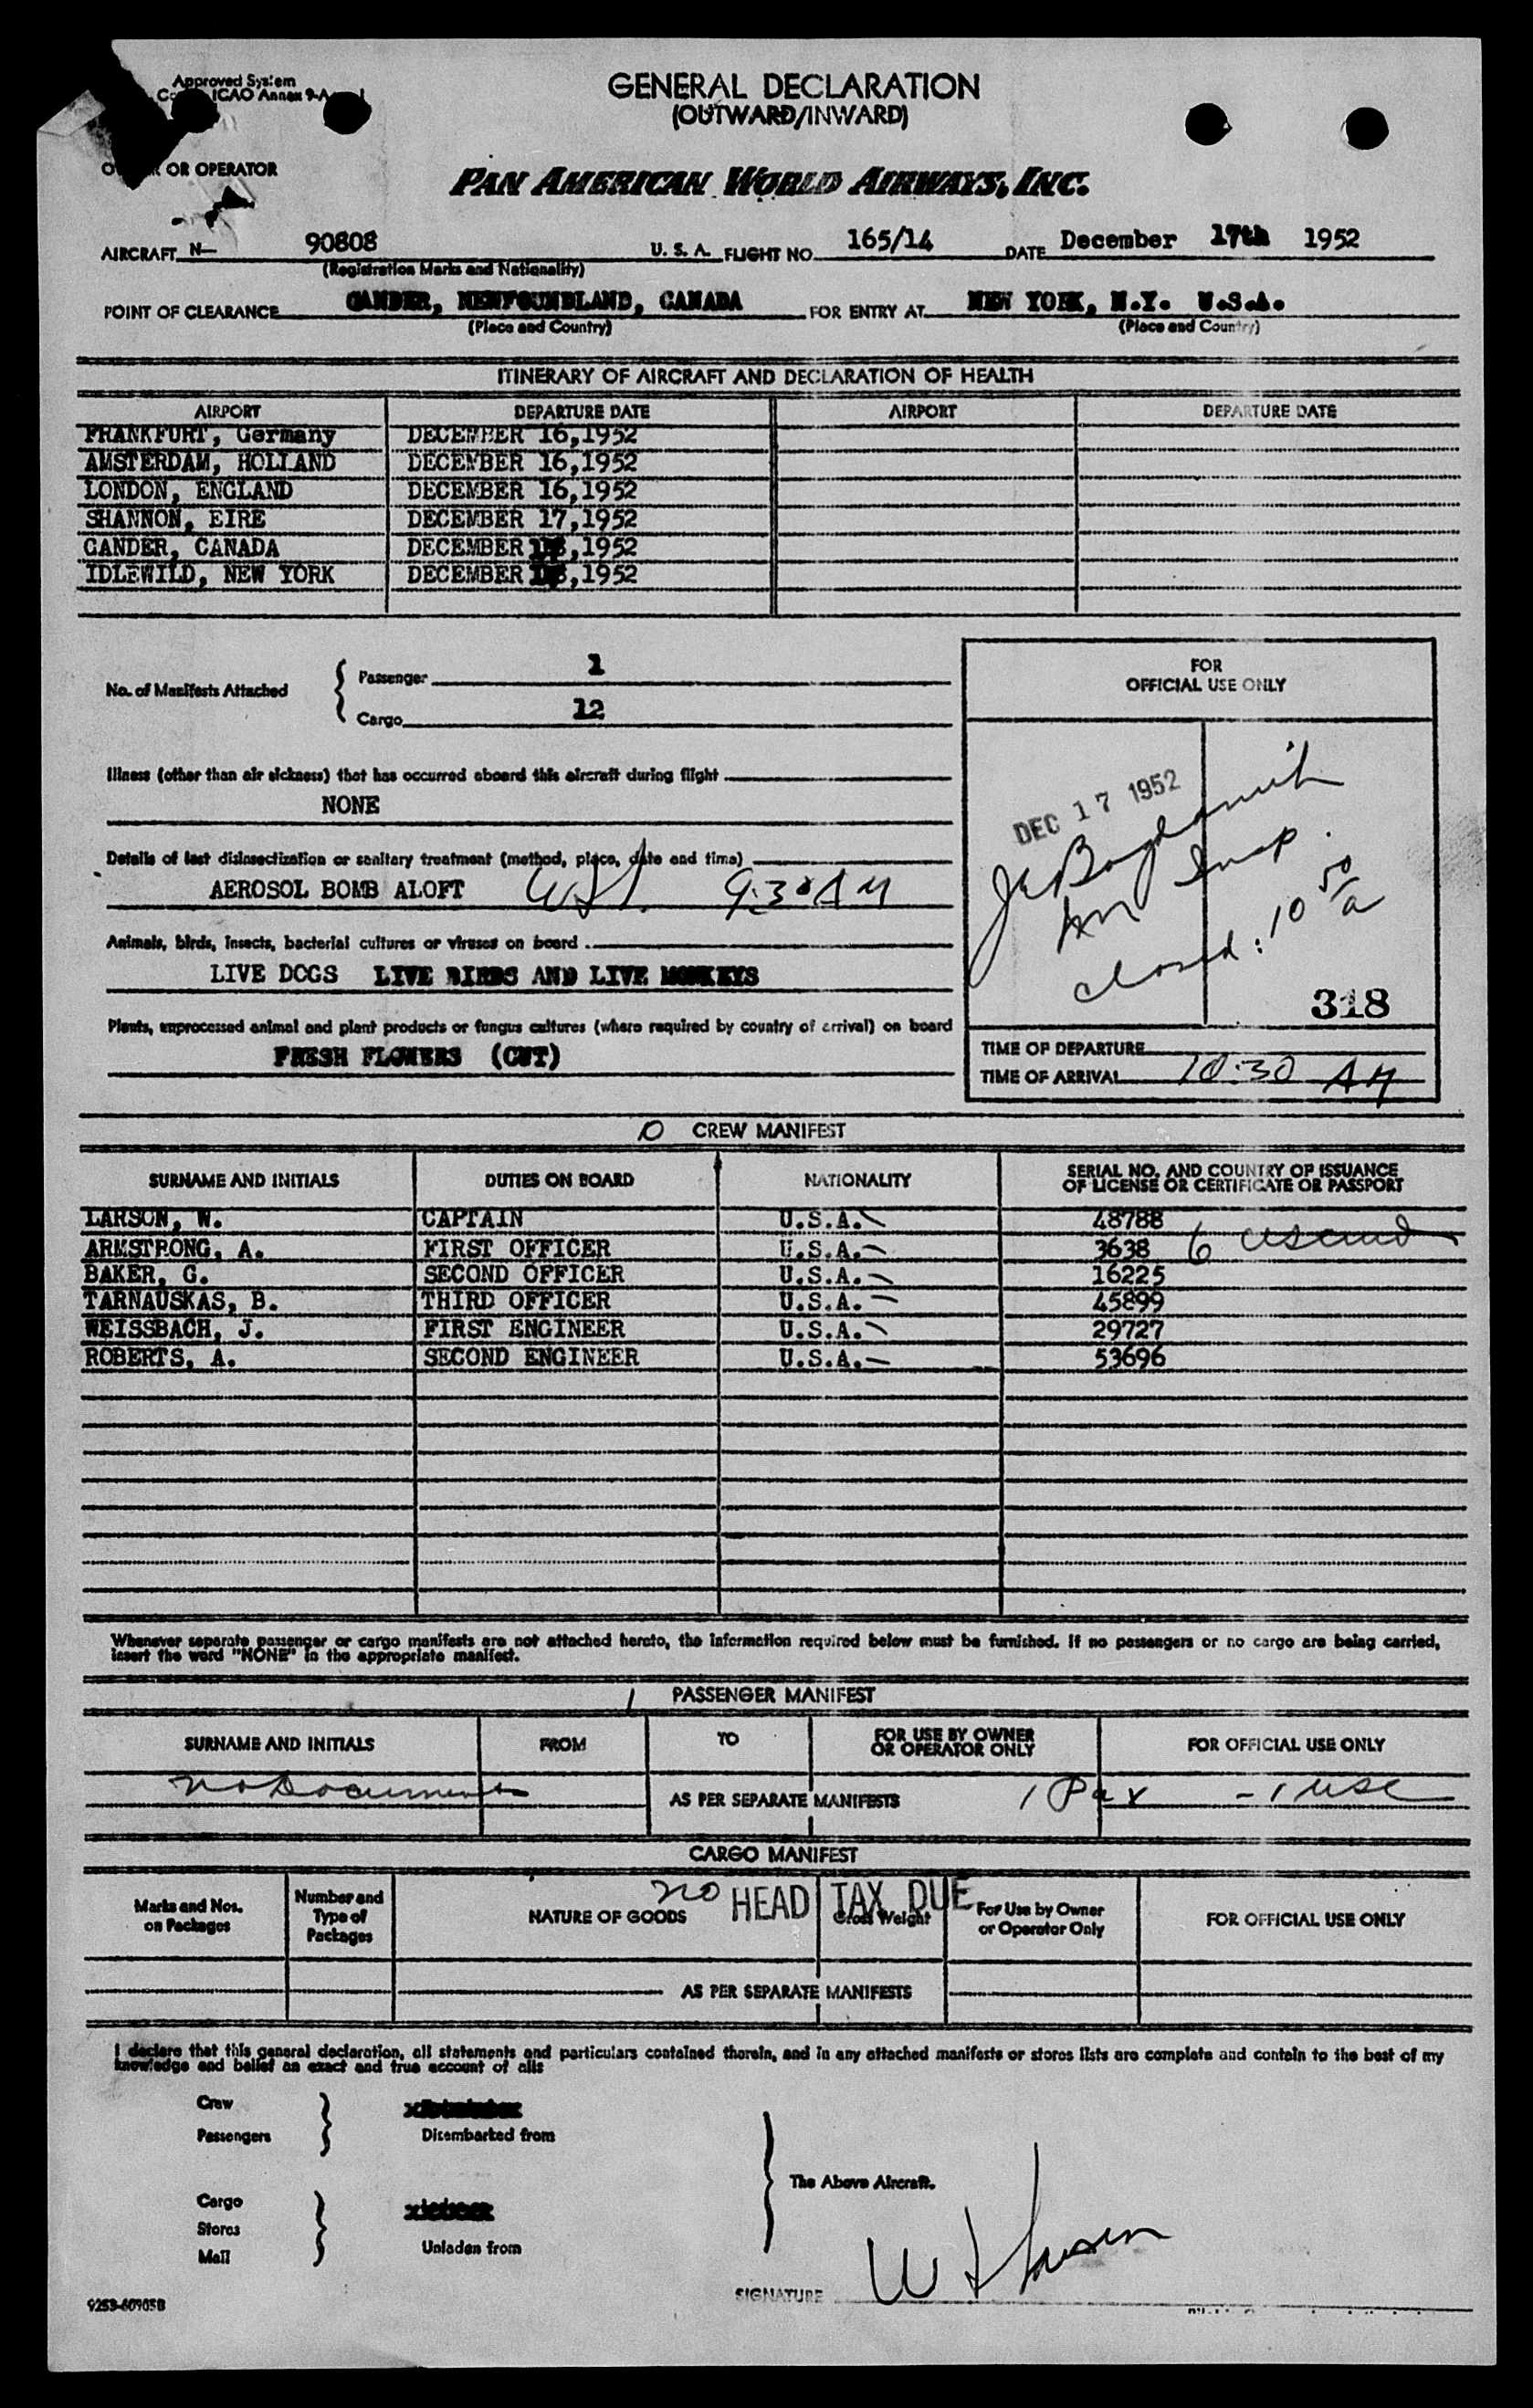 Approved System
ICAO Annex 9-A
GENERAL DECLARATION
(OUTWARD/INWARD)
OR OPERATOR
PAN AMERICAN WORLD AIRWAYS, INC.
AIRCRAFT N— 90808 U. S. A. FLIGHT NO. 165/14 DATE December 17th 1952
(Registration Marks and Nationality)
POINT OF CLEARANCE GANDER, NEWFOUNDLAND, CANADA FOR ENTRY AT NEW YORK, N.Y. U.S.A.
(Place and Country) (Place and Country)
ITINERARY OF AIRCRAFT AND DECLARATION OF HEALTH
AIRPORT DEPARTURE DATE AIRPORT DEPARTURE DATE
FRANKFURT, Germany DECEMBER 16,1952
AMSTERDAM, HOLLAND DECEMBER 16,1952
LONDON, ENGLAND DECEMBER 16,1952
SHANNON, EIRE DECEMBER 17,1952
GANDER, CANADA DECEMBER ,1952
IDLEWILD, NEW YORK DECEMBER ,1952
No. of Manifests Attached
Passenger 1
Cargo 12
FOR
OFFICIAL USE ONLY
Illness (other than air sickness) that has occurred aboard this aircraft during flight
NONE
DEC 17 1952
Details of last disinsectization or sanitary treatment (method, place, date and time)
AEROSOL BOMB ALOFT 9:30 AM
Imm Insp.
closed: 10 50 a
Animals, birds, insects, bacterial cultures or viruses on board
LIVE DOGS LIVE BIRDS AND LIVE MONKEYS
318
Plants, unprocessed animal and plant products or fungus cultures (where required by country of arrival) on board
FRESH FLOWERS (CUT)
TIME OF DEPARTURE
TIME OF ARRIVAL 10:30 AM
CREW MANIFEST
SURNAME AND INITIALS DUTIES ON BOARD NATIONALITY SERIAL NO. AND COUNTRY OF ISSUANCE
OF LICENSE OR CERTIFICATE OR PASSPORT
LARSON, W. CAPTAIN U.S.A. 48788
ARMSTRONG, A. FIRST OFFICER U.S.A. 3638 6
BAKER, G. SECOND OFFICER U.S.A. 16225
TARNAUSKAS, B. THIRD OFFICER U.S.A. 45899
WEISSBACH, J. FIRST ENGINEER U.S.A. 29727
ROBERTS, A. SECOND ENGINEER U.S.A. 53696
Whenever separate passenger or cargo manifests are not attached hereto, the information required below must be furnished. If no passengers or no cargo are being carried,
insert the word "NONE" in the appropriate manifest.
1 PASSENGER MANIFEST
SURNAME AND INITIALS FROM TO FOR USE BY OWNER
OR OPERATOR ONLY FOR OFFICIAL USE ONLY
no Documents AS PER SEPARATE MANIFESTS 1 Pax - 1 USC
CARGO MANIFEST
no HEAD TAX DUE
Marks and Nos.
on Packages
Number and
Type of
Packages
NATURE OF GOODS
Gross Weight
For Use by Owner
or Operator Only
FOR OFFICIAL USE ONLY
AS PER SEPARATE MANIFESTS
I declare that this general declaration, all statements and particulars contained therein, and in any attached manifests or stores lists are complete and contain to the best of my
knowledge and belief an exact and true account of all:
Crew
Passengers
Disembarked from
The Above Aircraft.
Cargo
Stores
Mail
Unladen from
SIGNATURE W Larson
9253-60905B